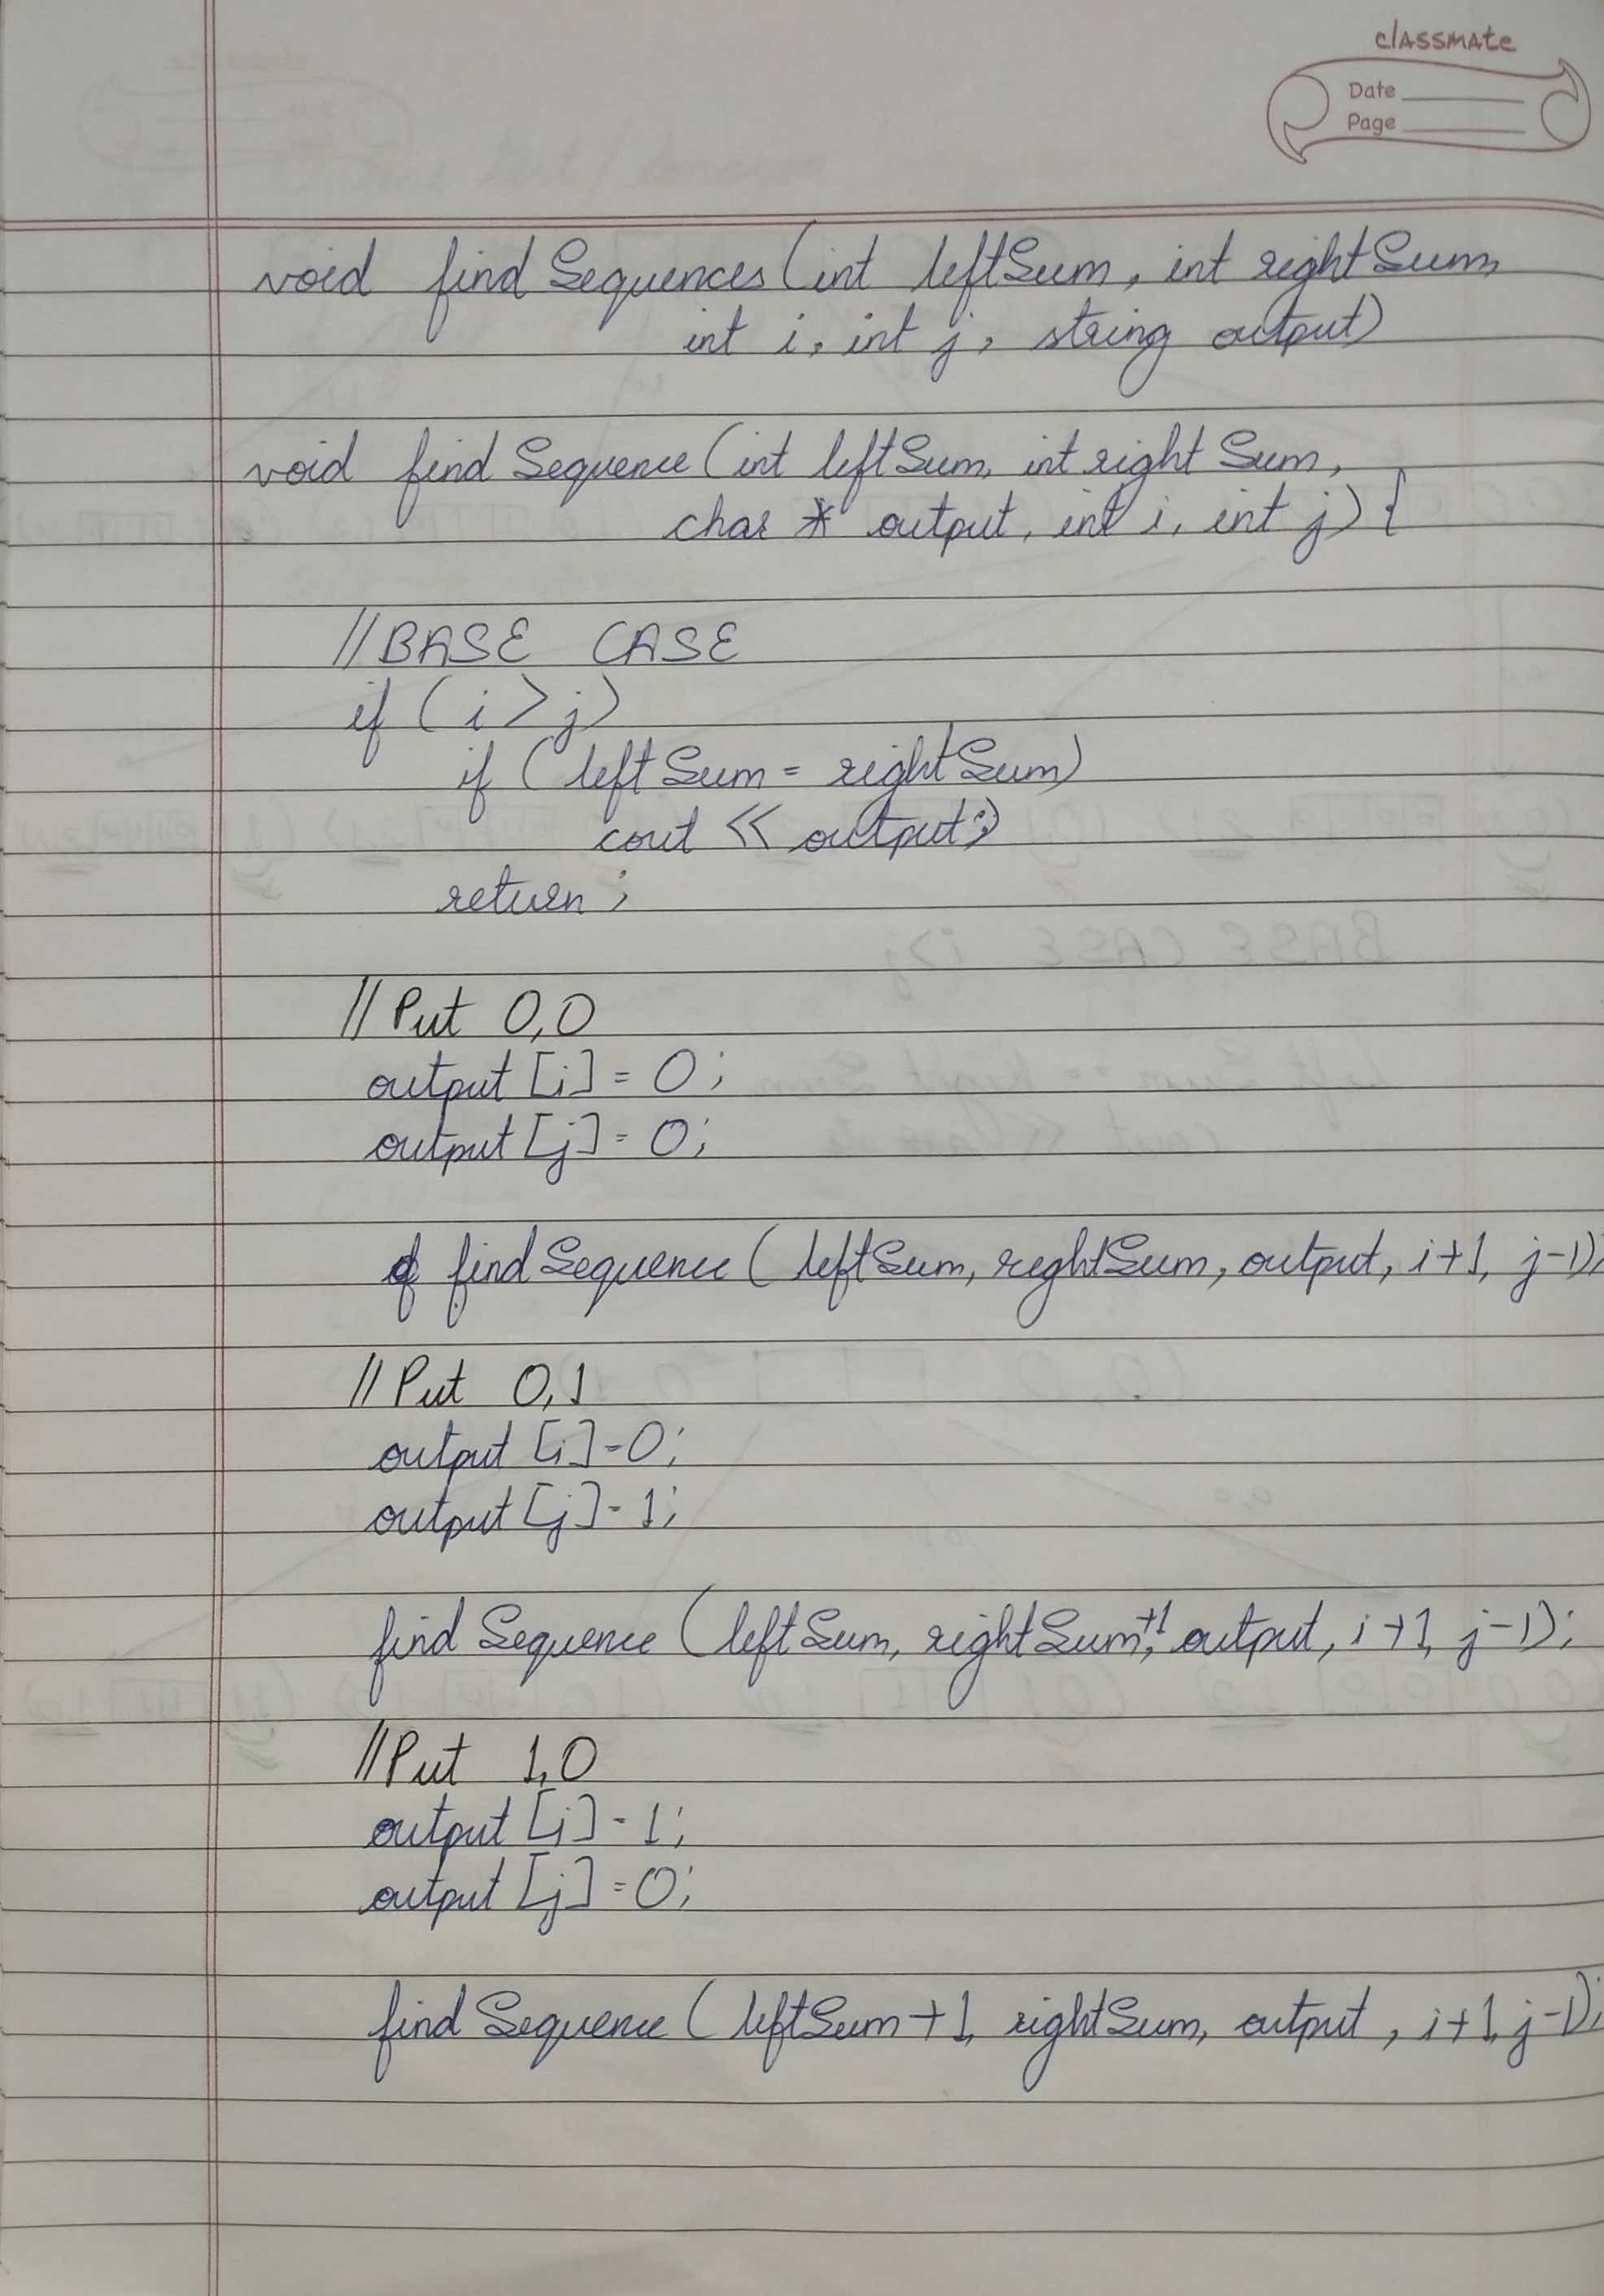 classmate
Date
Page
void findSequences (int leftSum, int rightSum,
int i, int j, string output)
void findSequence (int leftSum, int rightSum,
char * output, int i, int j) {
//BASE CASE
if (i > j)
if (leftSum = rightSum)
cout << output;
return;
// Put 0,0
output [i] = 0;
output [j] = 0;
findSequence (leftSum, rightSum, output, i+1, j-1);
// Put 0,1
output [i] = 0;
output [j] = 1;
findSequence (leftSum, rightSum+1, output, i+1, j-1);
// Put 1,0
output [i] = 1;
output [j] = 0;
findSequence (leftSum+1, rightSum, output, i+1, j-1);